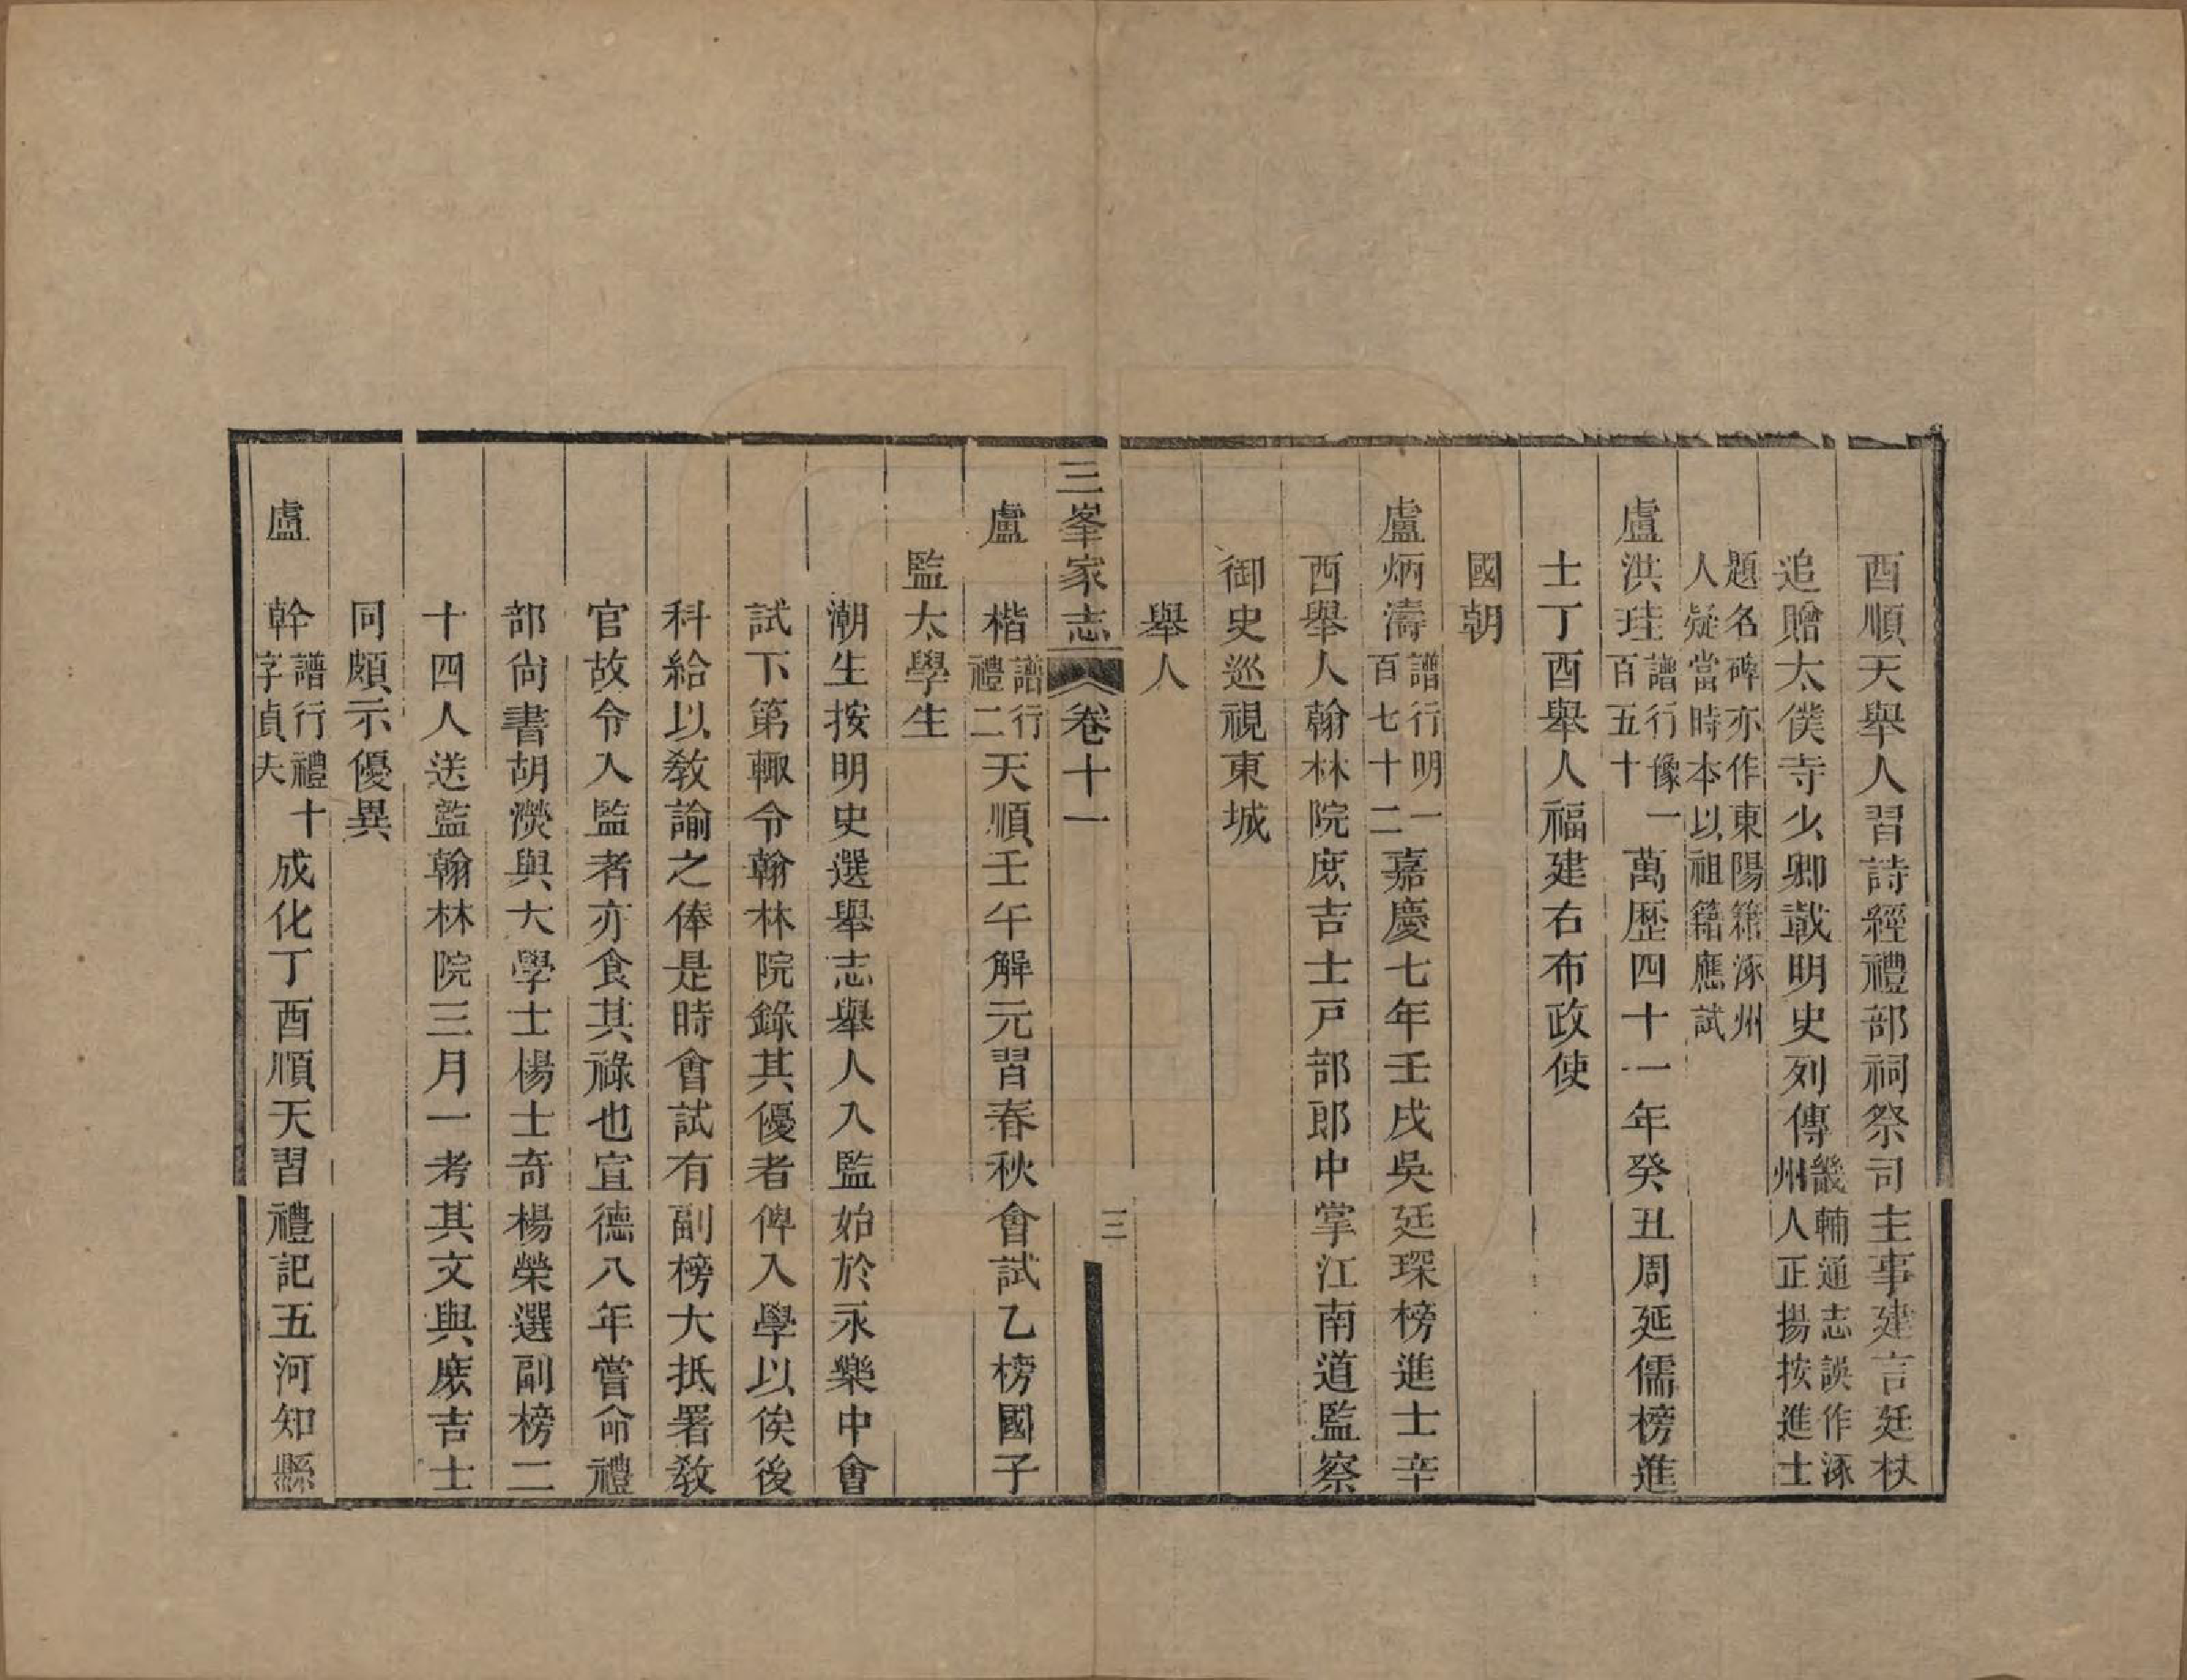 酉順天舉人習詩經禮部祠祭司主事建言廷杖
追贈太僕寺少卿載明史列傳畿輔通志誤作涿
州人正揚按進士
題名碑亦作東陽籍涿州
人疑當時本以祖籍應試
盧洪珪譜行像一
百五十萬歷四十一年癸丑周延儒榜進
士丁酉舉人福建右布政使
國朝
盧炳濤譜行明一
百七十二嘉慶七年壬戌吳廷琛榜進士辛
酉舉人翰林院庶吉士戸部郎中掌江南道監察
御史巡視東城
舉人
三峯家志 卷十一 三
盧楷譜行
禮二天順壬午解元習春秋會試乙榜國子
監太學生
潮生按明史選舉志舉人入監始於永樂中會
試下第輒令翰林院錄其優者俾入學以俟後
科給以敎諭之俸是時會試有副榜大抵署敎
官故令入監者亦食其祿也宣德八年嘗命禮
部尚書胡濙與大學士楊士奇楊榮選副榜二
十四人送監翰林院三月一考其文與庶吉士
同頗示優異
盧幹譜行禮十
字貞夫成化丁酉順天習禮記五河知縣